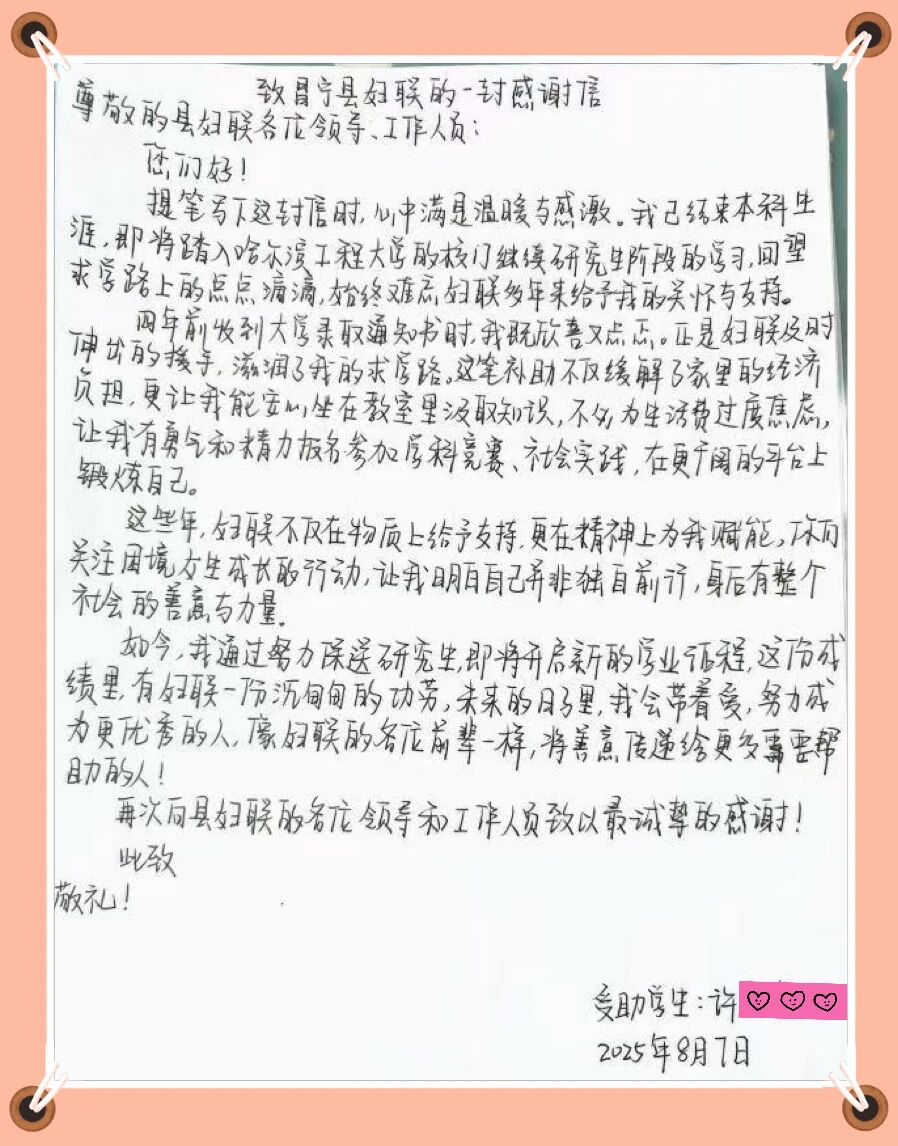 致昌宁县妇联的一封感谢信
尊敬的县妇联各位领导、工作人员:
您们好!
提笔写下这封信时,心中满是温暖与感激。我已结束本科生
涯,即将踏入哈尔滨工程大学的校门继续研究生阶段的学习,回望
求学路上的点点滴滴,始终难忘妇联多年来给予我的关怀与支持。
四年前收到大学录取通知书时,我既欣喜又忐忑。正是妇联及时
伸出的援手,滋润了我的求学路。这笔补助不仅缓解了家里的经济
负担,更让我能安心坐在教室里汲取知识,不必为生活费过度焦虑,
让我有勇气和精力报名参加学科竞赛、社会实践,在更广阔的平台上
锻炼自己。
这些年,妇联不仅在物质上给予支持,更在精神上为我赋能。你们
关注困境女生成长的行动,让我明白自己并非独自前行,身后有整个
社会的善意与力量。
如今,我通过努力保送研究生,即将开启新的学业征程,这份成
绩里,有妇联一份沉甸甸的功劳,未来的日子里,我会带着爱,努力成
为更优秀的人,像妇联的各位前辈一样,将善意传递给更多需要帮
助的人!
再次向县妇联的各位领导和工作人员致以最诚挚的感谢!
此致
敬礼!
受助学生:许
2025年8月7日